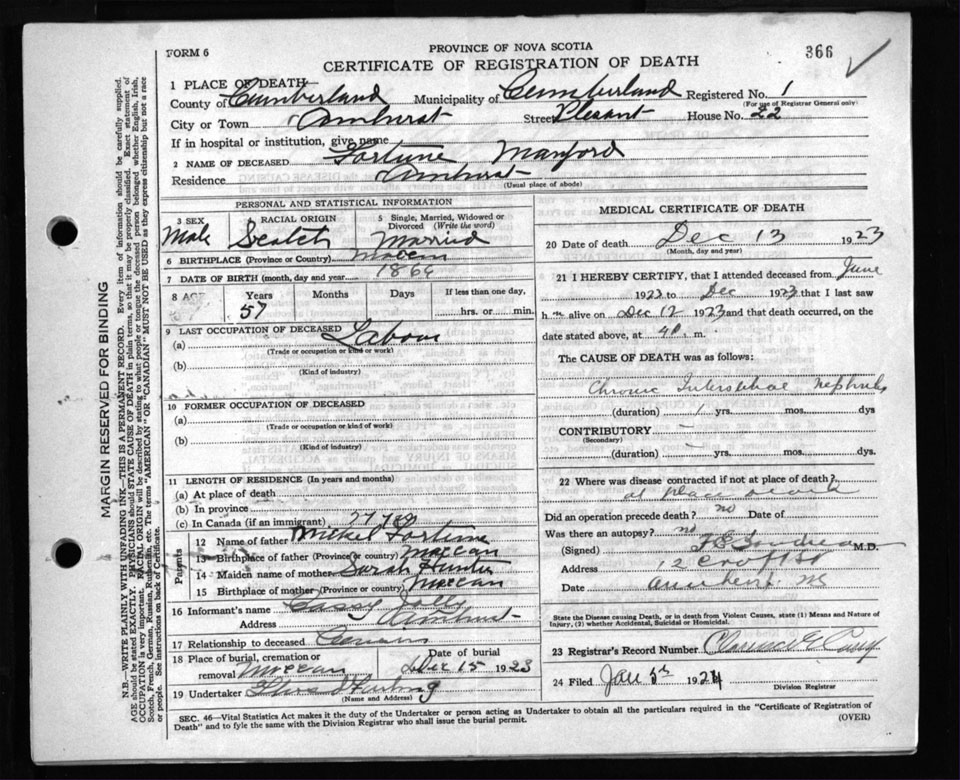 FORM 6
PROVINCE OF NOVA SCOTIA
366
CERTIFICATE OF REGISTRATION OF DEATH
1 PLACE OF DEATH—
County of Cumberland Municipality of Cumberland Registered No. 1
(For use of Registrar General only)
City or Town Amherst Street Plesant House No. 22
If in hospital or institution, give name
2 NAME OF DECEASED Fortune Manford
Residence Amherst
(Usual place of abode)
PERSONAL AND STATISTICAL INFORMATION
3 SEX
Male
RACIAL ORIGIN
Scotch
5 Single, Married, Widowed or Divorced (Write the word)
Married
6 BIRTHPLACE (Province or Country) Maccan
7 DATE OF BIRTH (month, day and year) 1866
8 AGE Years Months Days If less than one day,
57 hrs. or min.
9 LAST OCCUPATION OF DECEASED
(a) Labour
(Trade or occupation or kind of work)
(b)
(Kind of industry)
10 FORMER OCCUPATION OF DECEASED
(a)
(Trade or occupation or kind of work)
(b)
(Kind of industry)
11 LENGTH OF RESIDENCE (In years and months)
(a) At place of death
(b) In province
(c) In Canada (if an immigrant)
Parents
12 Name of father Fortune
13 Birthplace of father (Province or country) Maccan
14 Maiden name of mother Sarah Hunter
15 Birthplace of mother (Province or country) Maccan
16 Informant's name
Address Amherst
17 Relationship to deceased
18 Place of burial, cremation or removal Maccan
Date of burial
Dec 15 1923
19 Undertaker
(Name and Address)
MEDICAL CERTIFICATE OF DEATH
20 Date of death Dec 13 1923
(Month, day and year)
21 I HEREBY CERTIFY, that I attended deceased from June
1923 to Dec 1923 that I last saw
h im alive on Dec 12 1923 and that death occurred, on
date stated above, at 4 P. m.
The CAUSE OF DEATH was as follows:
Chronic Interstitial Nephritis
(duration) 1 yrs. mos. dys
CONTRIBUTORY —
(Secondary)
(duration) — yrs. mos. dys.
22 Where was disease contracted if not at place of death?
at place death
Did an operation precede death? no Date of
Was there an autopsy? no
(Signed) M.D.
Address 12 Croft St
Date Amherst
State the Disease causing Death, or in death from Violent Causes, state (1) Means and Nature of
Injury, (2) whether Accidental, Suicidal or Homicidal.
23 Registrar's Record Number
24 Filed Jan 5th 1924
Division Registrar
SEC. 46—Vital Statistics Act makes it the duty of the Undertaker or person acting as Undertaker to obtain all the particulars required in the "Certificate of Registration of
Death" and to fyle the same with the Division Registrar who shall issue the burial permit.
(OVER)
MARGIN RESERVED FOR BINDING
N.B.—WRITE PLAINLY WITH UNFADING INK—THIS IS A PERMANENT RECORD. Every item of information should be carefully supplied.
AGE should be stated EXACTLY. PHYSICIANS should STATE CAUSE OF DEATH in plain terms, so that it may be properly classified. Exact statement of
OCCUPATION is very important. RACIAL ORIGIN will be described by stating to what people or tongue the deceased person belonged whether English, Irish,
Scotch, French, German, Russian, Ruthenian, etc. The terms "AMERICAN" OR "CANADIAN" MUST NOT BE USED as they express citizenship but not a race
or people. See instructions on back of Certificate.